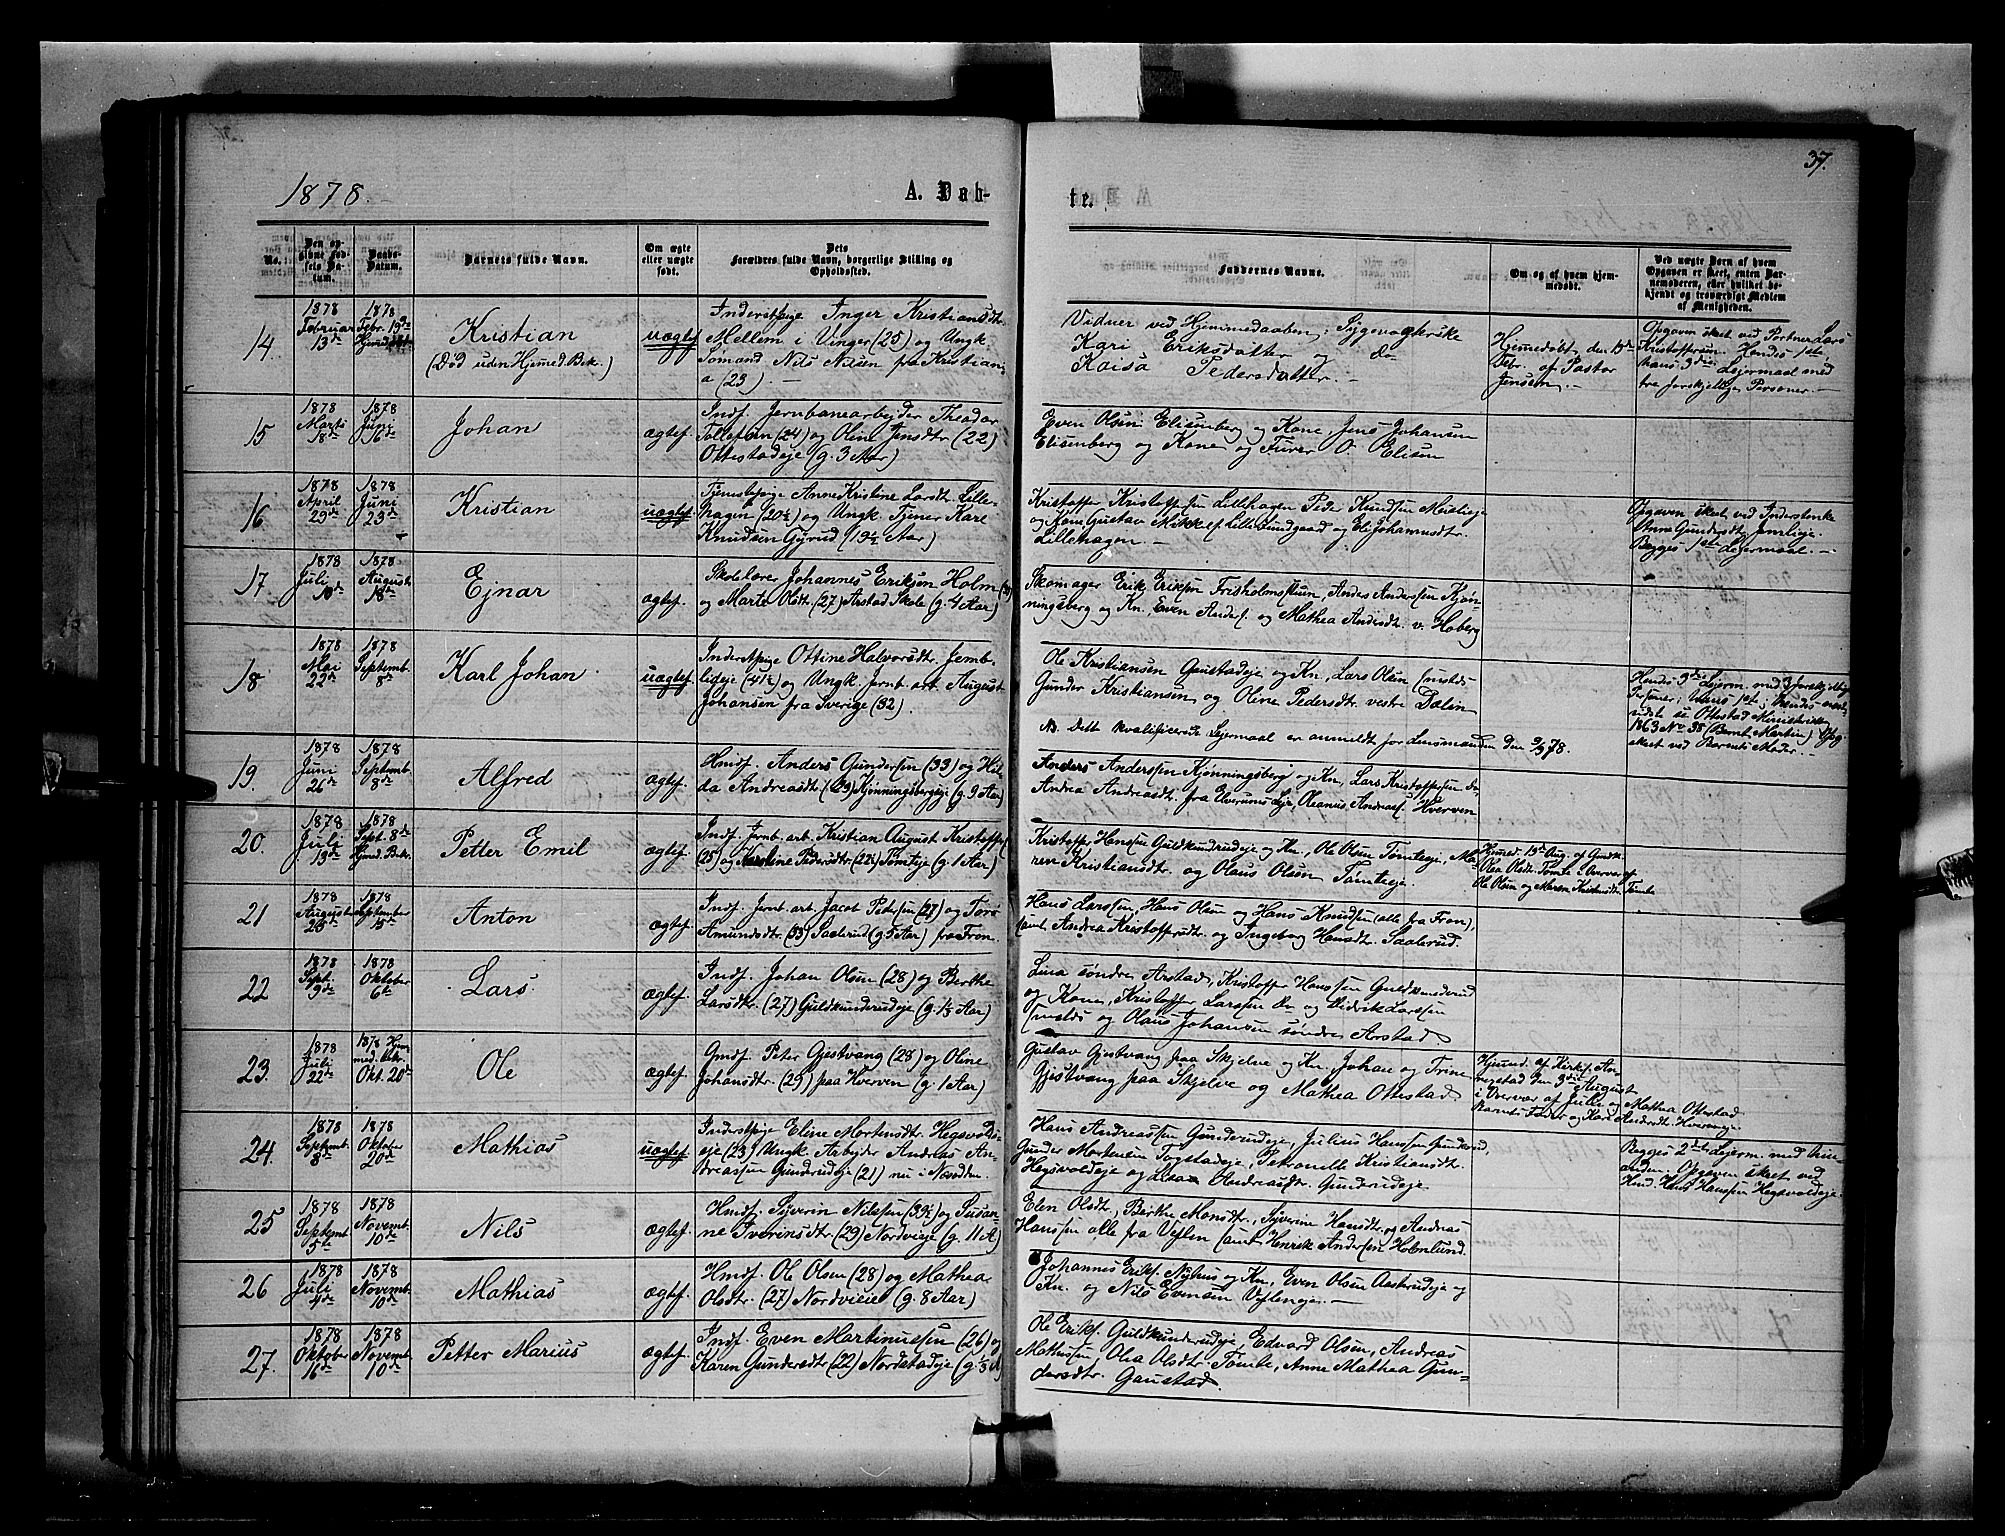 37.
1878.
A. Døb-
te.
No.
Den op-
givne Fød-
sels Da-
tum.
Daabs-
Datum.
Barnets fulde Navn.
Om ægte
eller uægte
født.
Dets
Forældres fulde Navn, borgerlige Stilling og
Opholdssted.
Faddernes Navne.
Om og af hvem hjem-
medøbt.
Ved uægte Børn af hvem
Opgaven er skeet, enten Bar-
nemoderen, eller hvilket be-
kjendt og troværdigt Medlem
af Menigheden.
14
1878
Februar
13de
1878
Febr. 19de
Kristian
(Død uden Hjmed. Bek.)
uægtef
Inderstpige Inger Kristiansdtr.
Mellem i Vinger (25) og Ungk.
Sømand Nils Nilsen fra Kristiani-
a (23). —
Vidner ved Hjemmedaaben: Sygevogterske
Kari Eriksdatter og do
Kaisa Pedersdatter. —
Hjemmedøbt den 19de
Febr. af Pastor
Jensen. —
Opgaven skeet ved Portner Lars
Kristoffersen. Hendes 1ste,
hans 3die Leiermaal med
tre forskjellige Personer. —
15
1878
Marts
18de
1878
Juni
16de
Johan
ægtef.
Indf. Jernbanearbejder Theodor
Tollefsen (24) og Oline Jensdtr. (22)
Ottestadeje (g. 3 Aar)
Even Olsen Elisenberg og Kone, Jens Johansen
Elisenberg og Kone og Furer O. Elisen
16
1878
April
29de
1878
Juni
23de
Kristian
uægtef.
Tjenestepige Anne Kristine Larsdtr. Lille-
hagen (20½) og Ungk. Tjener Karl
Knudsen Gyrud (19½ Aar)
Kristoffer Kristoffersen Lillehagen Peder Knudsen
og Kone Gustav Mikkels. Lillesundgaard og Eli Johannesdtr.
Lillehagen. —
Opgaven skeet ved Inderstenke
Anne Gundersdtr. Jemlieje.
Begges 1ste Lejermaal. —
17
1878
Juli
10de
1878
August
18de
Ejnar
ægtef.
Skolelærer Johannes Eriksen Holm
og Marte Olsdtr. (27) Arstad Skole (g. 4 Aar)
Skomager Erik Eriksen Frisholmsstuen, Anders Andersen Kjøn-
ningsberg og Kn., Even Anders. og Mathea Andersdtr. v. Hoberg
18
1878
Mai
22de
1878
Septemb.
8de
Karl Johan
uægtef
Inderstpige Ottine Halvorsdtr. Jemb-
lieje (41½) og Ungk. Jernb. arb. August
Johansen fra Sverige (32).
Ole Kristiansen Gaustadeje og Kn, Lars Olsen Smeds
Gunder Kristiansen og Oline Pedersdtr. vestre Dælin
NB. Dette kvalificerede Lejermaal er anmeldt for Lensmanden den 9/9 78.
Hendes 3die Lejerm. med 3 forskjellige
Personer, hans 1ste;
se Ottestad Ministerialb.
1863 No. 38 (Bernt Martin) Opg.
skeet ved Barnets Moder. —
19.
1878
Juni
26de
1878
Septemb.
8de
Alfred
ægtef.
Hmdf. Anders Gundersen (33) og Hil-
da Andreasdtr. (29) Kjønningsbergeje (g. 9 Aar)
Anders Andersen Kjønningsberg og Kn, Lars Kristoffersen do,
Andrea Andreasdtr. fra Elverums Leje, Oleanus Andreas. Hverven
20.
1878
Juli
13de
1878
Sept. 8de
Hjmed. Bek.
Petter Emil
ægtef.
Indf. Jernb. arb. Kristian August Kristoffers.
(25) og Karoline Pedersdtr. (22½) Tomteje (g. 1 Aar)
Kristoffer Hansen Guldkundrudeje og Kn., Ole Olsen Tomteeje, Ma-
ren Kristiansdtr. og Olaus Olsen Tomteeje.
Hjmed. 15de Aug. af Gmdk.
Olea Olsdtr. Tomte i Overvær af
Ole Olsen og Maren Kristensdtr. Tomte
21
1878
August
23de
1878
September
15de
Anton
ægtef.
Indf. Jernb. arb. Jacob Petersen (27) og Tore
Amundsdtr. (33) Saaterud (g 5 Aar) fra Fron.
Hans Larssen, Hans Olsen og Hans Knudsen (alle fra Fron),
samt Andrea Kristoffersdtr. og Ingeborg Hansdtr. Saaterud.
22
1878
Sept.
9de
1878
Oktober
6te
Lars
ægtef.
Indf. Johan Olsen (28) og Berthe
Larsdtr. (27) Guldkunderudeje (g. 1½ Aar)
Lina søndre Arstad, Kristoffer Hanssen Guldkunderud
og Kone, Kristoffer Larssen do og Didrik Larssen
Smeds og Olaus Johansen søndre Arstad.
23.
1878
Juli
22de
1878 Hjem-
med. bek.
Okt. 20de
Ole
ægtef.
Gmdf. Peter Gjestvang (28) og Oline
Johansdtr. (29) paa Hverven (g. 1 Aar)
Gustav Gjestvang paa Skjelve og Kn, Johan og Trine
Gjestvang paa Skjelve og Mathea Ottestad
Hjmed. af Kirks. An-
nestad den 3die August
i Overvær af Julie og Mathea Ottestad
Barnets Fader og Kari Andersdtr. Hverveneje.
24.
1878
Septemb.
8de
1878
Oktober
20de
Mathias
uægtef
Inderstpige Eline Mortensdtr. Hegsvolds-
eje (23) Ungk. Arbejder Andreas An-
dreassen Gunderudeje (21) nu i Nordden.
Hans Andreassen Gunderudeje, Julius Hanssen Gunderud,
Gunder Mortensen Togstadeje, Petronelle Kristiansdtr.
Hegsvoldseje og Lisa Andreasdtr. Gunderudeje.
Begges 2det Lejerm. med hin-
anden. Opgaven skeet ved
Hmd. Hans Hanssen Hegsvoldseje
25
1878
Septemb.
5te
1878
Novemb.
10de
Nils
ægtef.
Hmdf. Syverin Nilssen (33½) og Susan-
ne Iverinsdtr. (29) Nordvieje (g. 11 A)
Elen Olsdtr., Birthe Monsdtr., Syverine Hansdtr. og Andreas
Hanssen alle fra Veflen samt Henrik Andersen Holmlund.
26
1878
Juli
4de
1878
Novemb.
10de
Mathias
ægtef.
Hmdf. Ole Olsen (28) og Mathea
Olsdtr. (27) Nordvieie (g. 8 Aar)
Johannes Eriks. Nyhus og Kn, Even Olsen Aasterudeje og
Kn. og Nils Evensen Veflengeje. —
27.
1878
Oktober
16de
1878
Novemb.
10de
Petter Marius
ægtef.
Indf. Even Martinussen (26) og
Karen Gundersdtr (22) Nordstadeje (g. ½ A
Ole Eriks. Guldkunderudeje Edvard Olsen, Andreas
Mathissen, Olea Olsdtr. Tomte, Anne Mathea Gun-
dersdtr. Gaustad.